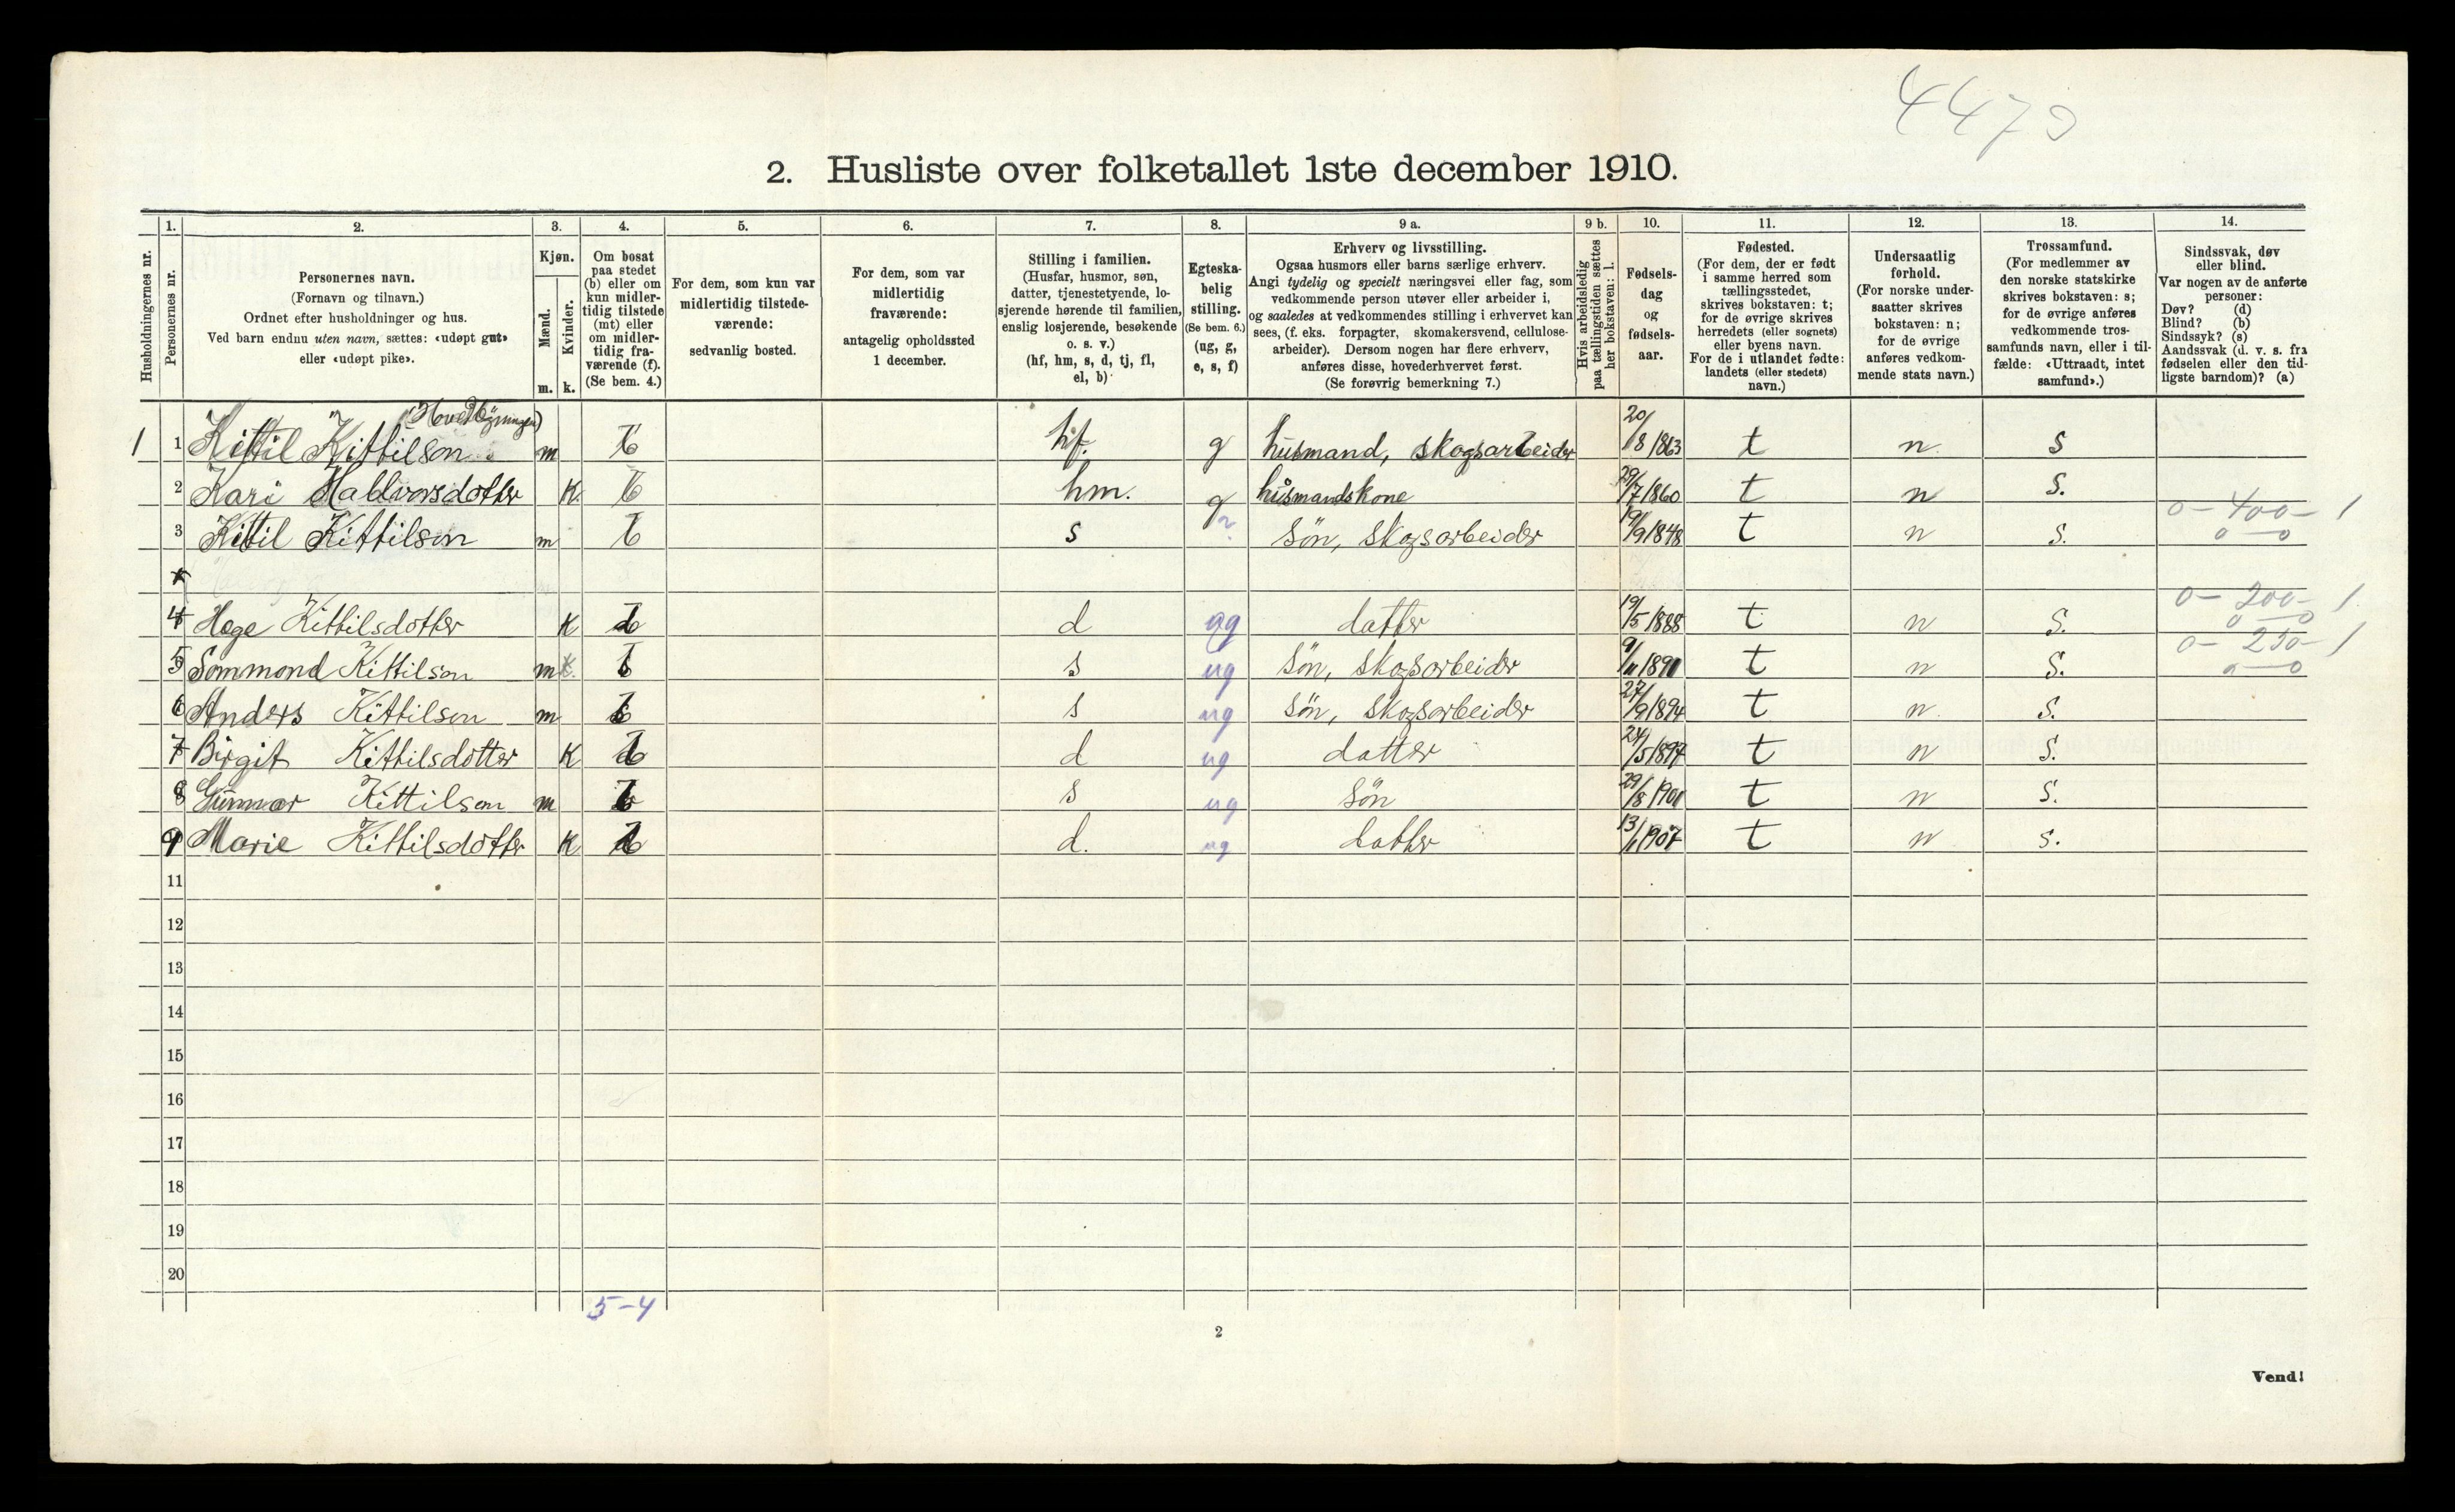 4470
2. Husliste over folketallet 1ste december 1910.
Husholdningernes nr.
1. Personernes nr.
2. Personernes navn. (Fornavn og tilnavn.) Ordnet efter husholdninger og hus. Ved barn endnu uten navn, sættes: «udøpt gut» eller «udøpt pike».
3. Kjøn. Mænd. m. Kvinder. k.
4. Om bosat paa stedet (b) eller om kun midlertidig tilstede (mt) eller om midlertidig fraværende (f). (Se bem. 4.)
5. For dem, som kun var midlertidig tilstedeværende: sedvanlig bosted.
6. For dem, som var midlertidig fraværende: antagelig opholdssted 1 december.
7. Stilling i familien. (Husfar, husmor, søn, datter, tjenestetyende, losjerende hørende til familien, enslig losjerende, besøkende o. s. v.) (hf, hm, s, d, tj, fl, el, b)
8. Egteskabelig stilling. (Se bem. 6.) (ug, g, e, s, f)
9 a. Erhverv og livsstilling. Ogsaa husmors eller barns særlige erhverv. Angi tydelig og specielt næringsvei eller fag, som vedkommende person utøver eller arbeider i, og saaledes at vedkommendes stilling i erhvervet kan sees, (f. eks. forpagter, skomakersvend, cellulosearbeider). Dersom nogen har flere erhverv, anføres disse, hovederhvervet først. (Se forøvrig bemerkning 7.)
9 b. Hvis arbeidsledig paa tællingstiden sættes her bokstaven: l.
10. Fødselsdag og fødselsaar.
11. Fødested. (For dem, der er født i samme herred som tællingsstedet, skrives bokstaven: t; for de øvrige skrives herredets (eller sognets) eller byens navn. For de i utlandet fødte: landets (eller stedets) navn.)
12. Undersaatlig forhold. (For norske undersaatter skrives bokstaven: n; for de øvrige anføres vedkommende stats navn.)
13. Trossamfund. (For medlemmer av den norske statskirke skrives bokstaven: s; for de øvrige anføres vedkommende trossamfunds navn, eller i tilfælde: «Uttraadt, intet samfund».)
14. Sindssvak, døv eller blind. Var nogen av de anførte personer: Døv? (d) Blind? (b) Sindssyk? (s) Aandssvak (d. v. s. fra fødselen eller den tidligste barndom)? (a)
1 1 Kittil Kittilson m b hf. g husmand, skogsarbeider 20/8 1863 t n s
2 Kari Halvorsdotter K b hm. g husmandskone 29/7 1860 t n s.
0 - 400 - 1
3 Kittil Kittilson m b s søn, skogsarbeider t n s. 0 - 0
0 - 200 - 1
4 Hege Kittilsdotter K b d ug datter 19/5 1888 t n s. 0 - 0
0 - 250 - 1
5 Sommond Kittilson m b s ug søn, skogsarbeider t n s. 0 - 0
6 Anders Kittilson m b s ug søn, skogsarbeider 27/9 1894 t n. s.
7 Birgit Kittilsdotter K b d ug datter 24/5 1897 t n s.
8 Gunnar Kittilson m b s ug søn 29/8 1901 t n s.
9 Marie Kittilsdotter K b d. ug datter 13/1 1907 t n s.
11
12
13
14
15
16
17
18
19
20
5-4
2
Vend!